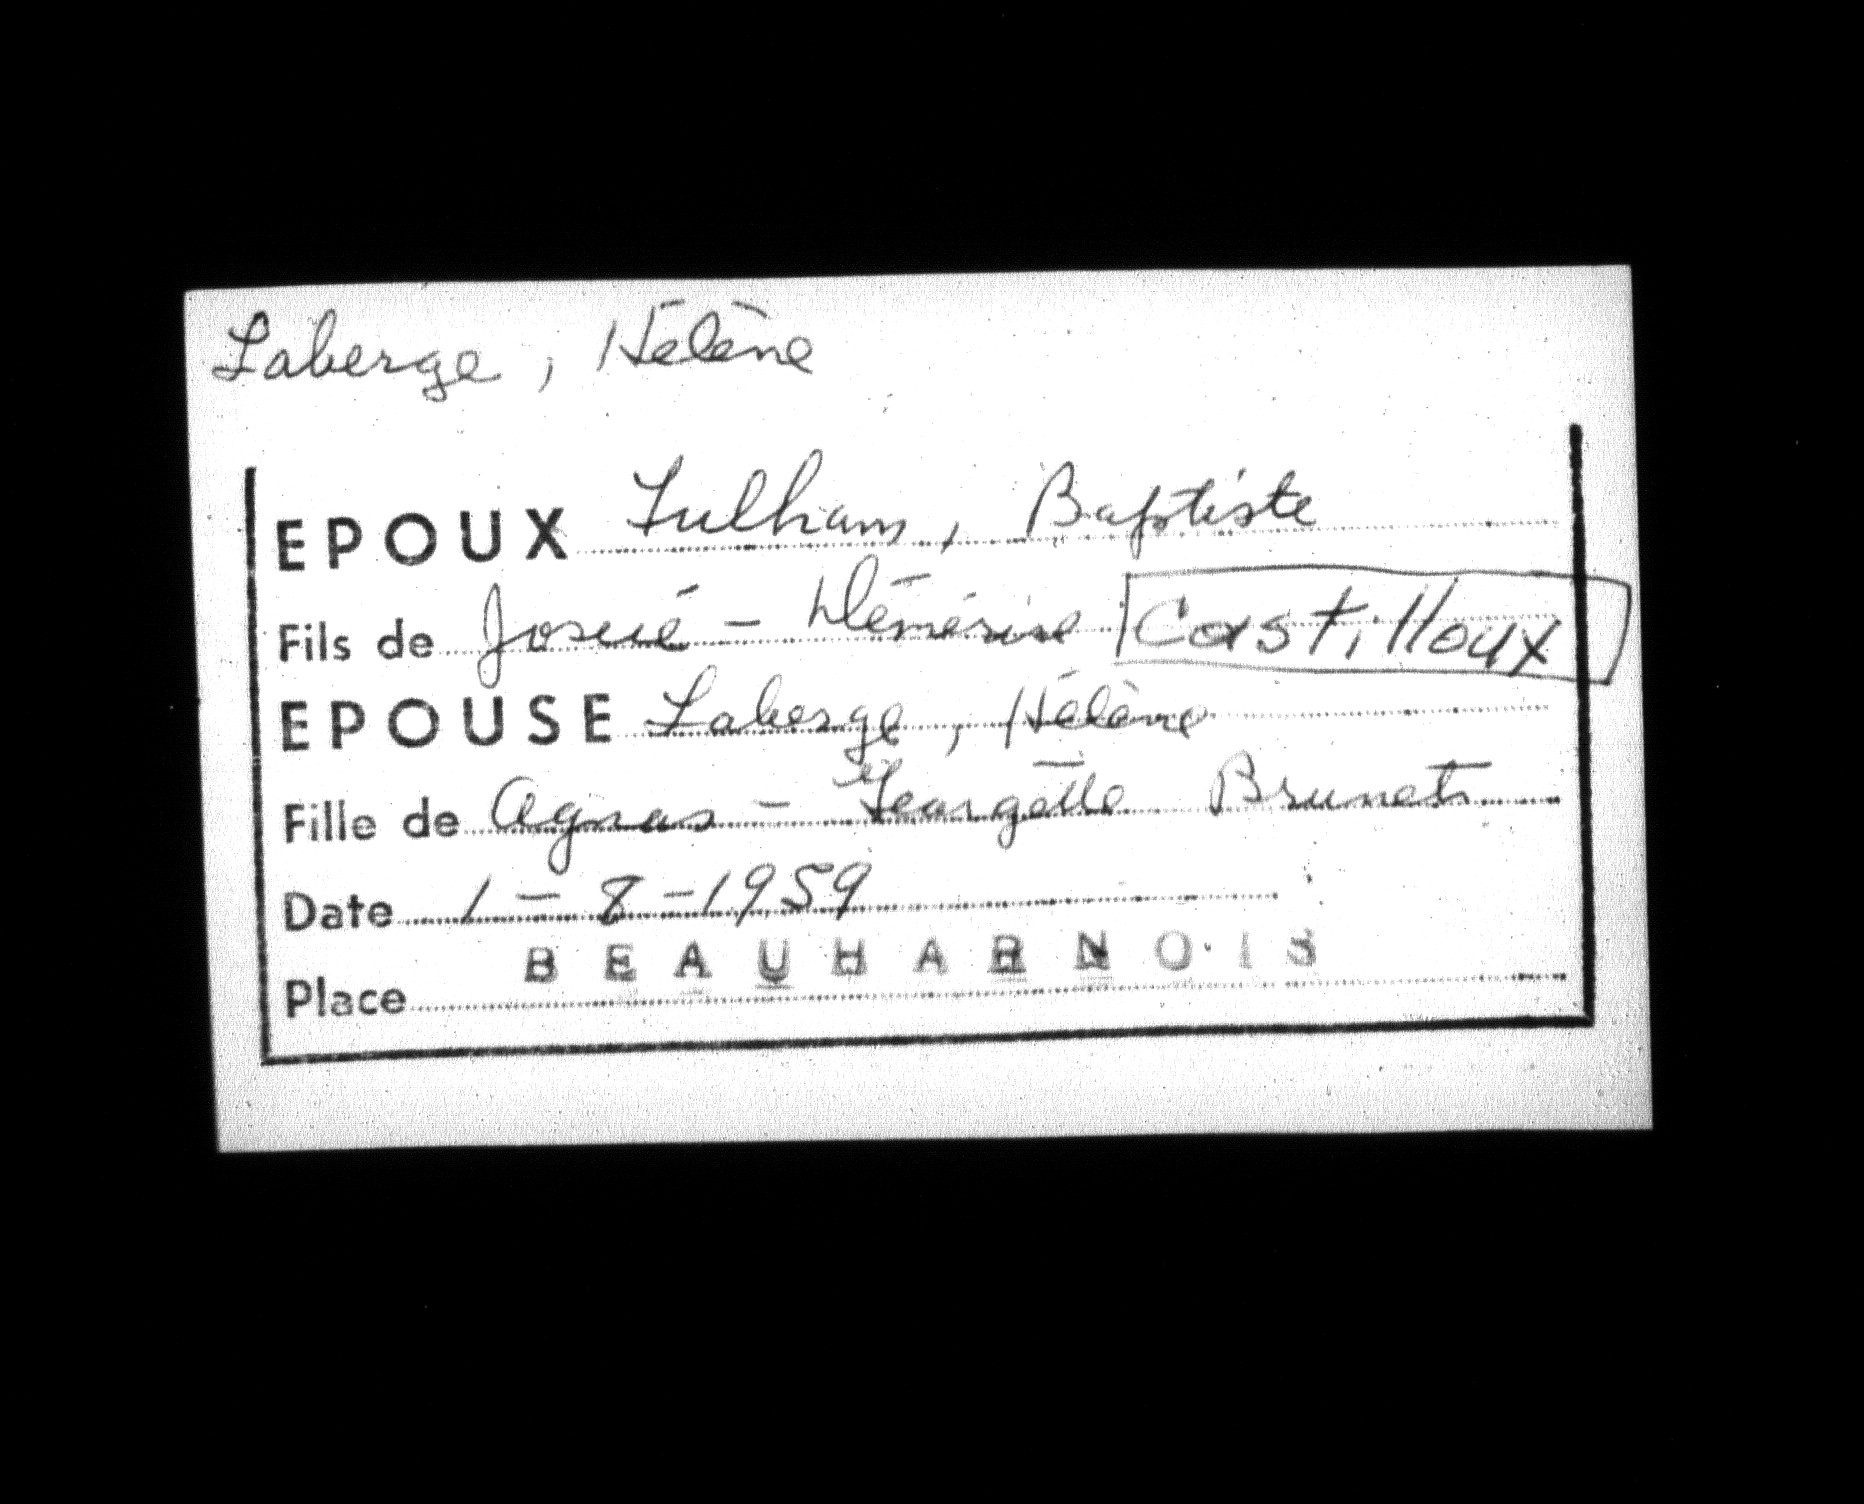 Laberge, Hélène
EPOUX Fulham, Baptiste
Fils de Josué - Démérise Castilloux
EPOUSE Laberge, Hélène
Fille de Agnas - Georgette Brunet
Date 1-8-1959
Place BEAUHARNOIS